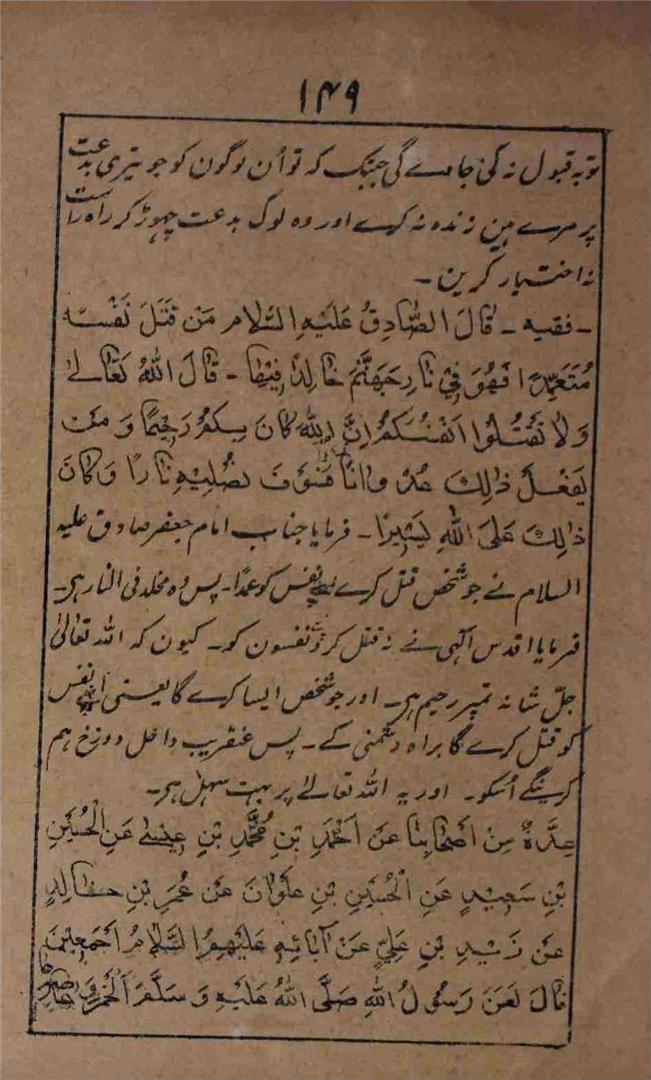 ۱۴۹
توبہ قبول نہ کی جاوے گی جبتک کہ تو اُن لوگون کو جو تیری بدعت
پر مرے ہین زندہ نہ کرے اور وہ لوگ بدعت چہوڑ کر راہ راست
نہ اختیار کرین ۔
۔ فقیہ ۔ قَالَ الصَّادِقُ عَلَیْہِ السَّلَام مَن قَتَلَ نَفْسَہ
مُتَعَمِّدًا فَہُوَ فِیْ نَارِ جَہَنَّمَ خَالِدًا فِیْہَا ۔ قَالَ اللّٰہُ تَعَالٰے
وَلَا تَقْتُلُوا اَنْفُسَکُمْ اِنَّ اللّٰہَ کَانَ بِکُمْ رَحِیْمًا وَ مَنْ
یَفْعَلْ ذٰلِکَ عُدْوَانًا فَسَوْفَ نُصْلِیْہِ نَارًا وَ کَانَ
ذٰلِکَ عَلَی اللّٰہِ یَسِیْرًا ۔ فرمایا جناب امام جعفر صادق علیہ
السلام نے جو شخص قتل کرے اپنے نفس کو عمدًا ۔ پس وہ مخلد فی النار ہی ۔
فرمایا اقدس آلہی نے نہ قتل کرو نفسون کو ۔ کیون کہ اللہ تعالیٰ
جلّ شانہ تمپر رحیم ہی ۔ اور جو شخص ایسا کرے گا یعنی اپنے نفس
کو قتل کرے گا براہ دشمنی کے ۔ پس عنقریب داخل دوزخ ہم
کرینگے اُسکو ۔ اور یہ اللہ تعالےٰ پر بہت سہل ہی ۔
عِدَّۃٌ مِنْ اَصْحَابِنَا عَنْ اَحْمَدِ بْنِ مُحَمَّدِ بْنِ عِیْسٰی عَنِ الْحُسَیْنِ
بْنِ سَعِیْدٍ عَنِ الْحُسَیْنِ بْنِ عَلْوَانَ عَن عُمَرِ بْنِ خَالِدٍ
عَنْ زَیْدِ بْنِ عَلِیٍّ عَنْ آبَائِہٖ عَلَیْہِمُ السَّلَامُ اَجْمَعِیْنَ
قَالَ لَعَنَ رَسُوْلُ اللّٰہِ صَلَّی اللّٰہُ عَلَیْہِ وَ سَلَّمَ الْخَمْرَ وَ عَاصِرَہَا